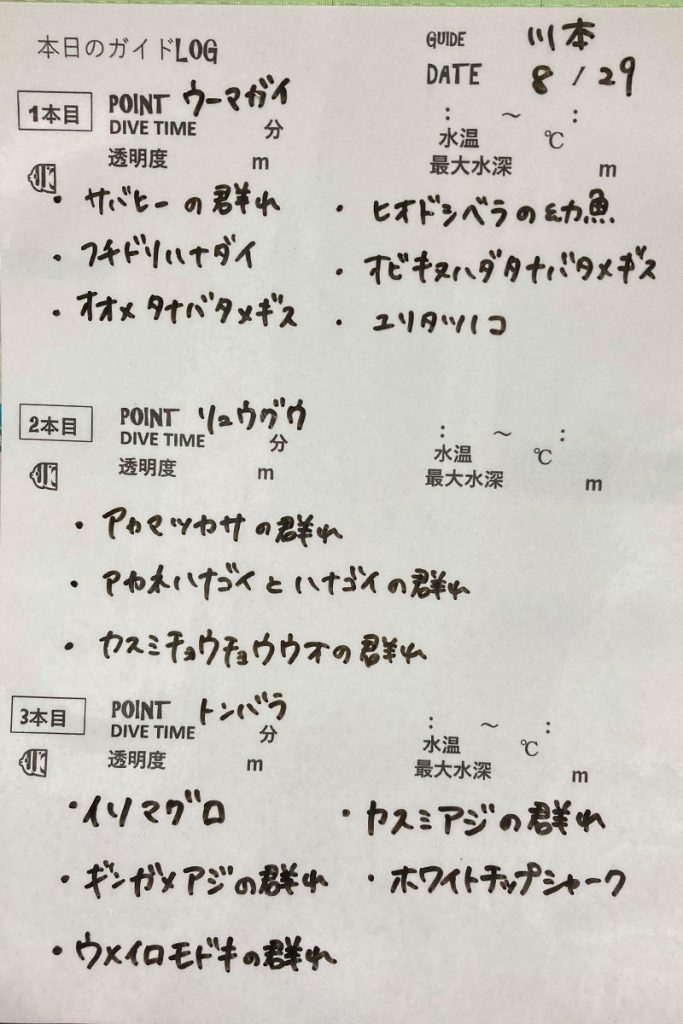 本日のガイドLOG
GUIDE 川本
DATE 8/29
1本目 POINT ウーマガイ
DIVE TIME 分 : ～ :
水温 ℃
透明度 m 最大水深 m
・サバヒーの群れ ・ヒオドシベラの幼魚
・フチドリハナダイ ・オビキヌハダタナバタメギス
・オオメタナバタメギス ・ユリタツノコ
2本目 POINT リュウグウ
DIVE TIME 分 : ～ :
水温 ℃
透明度 m 最大水深 m
・アカマツカサの群れ
・アカネハナゴイとハナゴイの群れ
・カスミチョウチョウウオの群れ
3本目 POINT トンバラ
DIVE TIME 分 : ～ :
水温 ℃
透明度 m 最大水深 m
・イソマグロ ・カスミアジの群れ
・ギンガメアジの群れ ・ホワイトチップシャーク
・ウメイロモドキの群れ